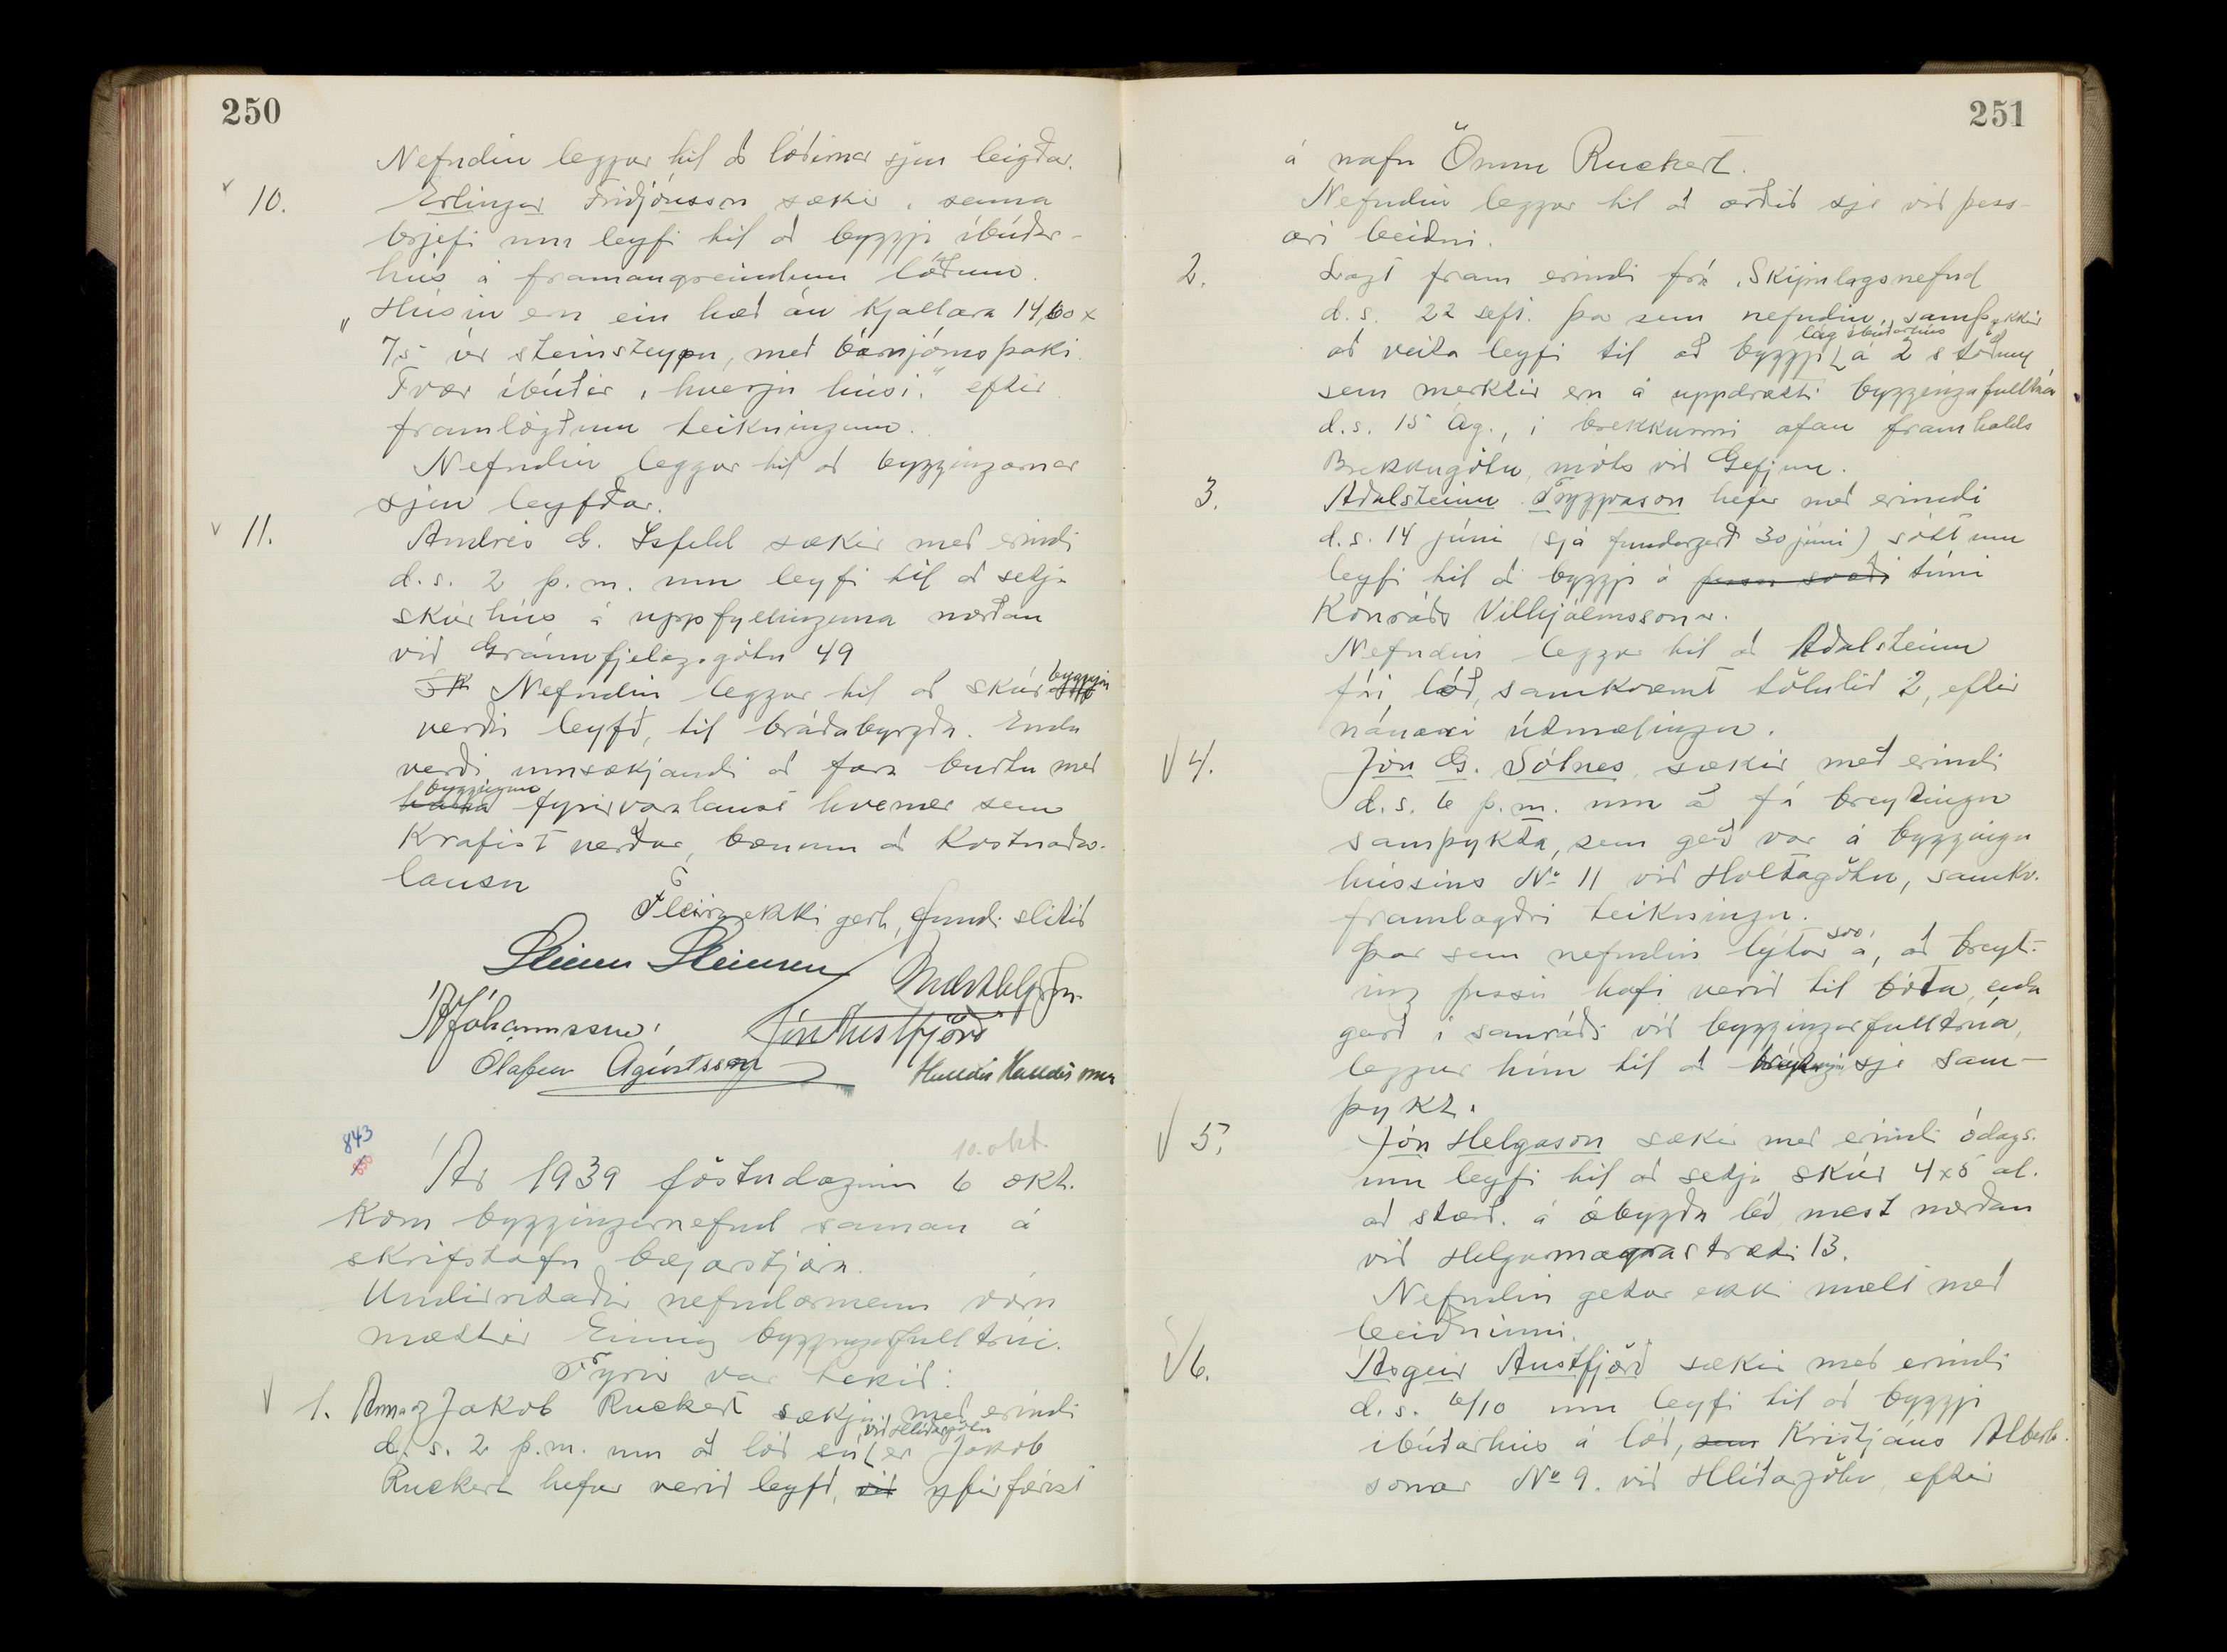 250
Nefndin leggur til að lóðirnar sjeu leigðar.
10. Erlingur Friðjónsson sækir í sama
brjefi um leyfi til að byggja íbúðar-
hús á framangreindum lóðum.
„Húsin eru ein hæð án kjallara 14,60 x
7,5 úr steinsteypu, með bárujárnsþaki.
Tvær íbúðir í hverju húsi." eftir
framlögðum teikningum.
Nefndin leggur til að byggingarnar
sjeu leyfðar.
11. Andrés G. Ísfeld sækir með erindi
d.s. 2 þ.m. um leyfi til að setja
skúrhús á uppfyllinguna norðan
við Gránufjelagsgötu 49
Nefndin leggur til að skúrbyggingin
verði leyfð, til bráðabyrgða. Enda
verði umsækjandi að fara burtu með
bygginguna fyrirvaralaust hvenær sem
krafist verður, bænum að kostnaðar-
lausu
Fleira ekki gert, fundi slitið
Steinn Steinsen
Jóhannsson
Jón Austfjörð
Ólafur Ágústsson
Halldór Halldórsson
843
10. okt.
Ár 1939 föstudaginn 6 okt.
kom byggingarnefnd saman á
skrifstofu bæjarstjóra.
Undirritaðir nefndarmenn voru
mættir Einnig byggingafulltrúi.
Fyrir var tekið:
1. Anna og Jakob Ruckert sækja með erindi
d.s. 2 þ.m. um að lóð sú við Hlíðargötu er Jakob
Ruckert hefur verið leyfð, við yfirfærist
251
á nafn Önnu Ruckert.
Nefndin leggur til að orðið sje við þess-
ari beiðni.
2. Lagt fram erindi frá Skipulagsnefnd
d.s. 22 sept. þar sem nefndin samþykkir
að veita leyfi til að byggja lág íbúðarhús á 2 stöðum
sem merktir eru á uppdrætti byggingafulltrúa
d.s. 15 ág., í brekkunni ofan framhalds
Brekkugötu, móts við Gefjun.
3. Aðalsteinn Tryggvason hefur með erindi
d.s. 14 júní (sjá fundargerð 30 júní) sótt um
leyfi til að byggja á þessu svæði túni
Konráðs Vilhjálmssonar.
Nefndin leggur til að Aðalsteinn
fái lóð, samkvæmt tölulið 2, eftir
nánari útmælingu.
4. Jón G. Sólnes sækir með erindi
d.s. 6 þ.m. um að fá breytingu
samþykta, sem gerð var á byggingu
hússins No 11 við Holtagötu, samkv.
framlagðri teikningu.
Þar sem nefndin lýtur svo á, að breyt-
ing þessi hafi verið til bóta, enda
gerð í samráði við byggingarfulltrúa,
leggur hún til að breytingin sje sam-
þykt.
5. Jón Helgason sækir með erindi ódags.
um leyfi til að setja skúr 4x5 al.
að stærð. á óbygða lóð næst norðan
við Helgamagrastræti 13.
Nefndin getur ekki mælt með
beiðninni.
6. Ásgeir Austfjörð sækir með erindi
d.s. 6/10 um leyfi til að byggja
íbúðarhús á lóð, sem Kristjáns Alberts-
sonar No 9. við Hlíðargötu, eftir